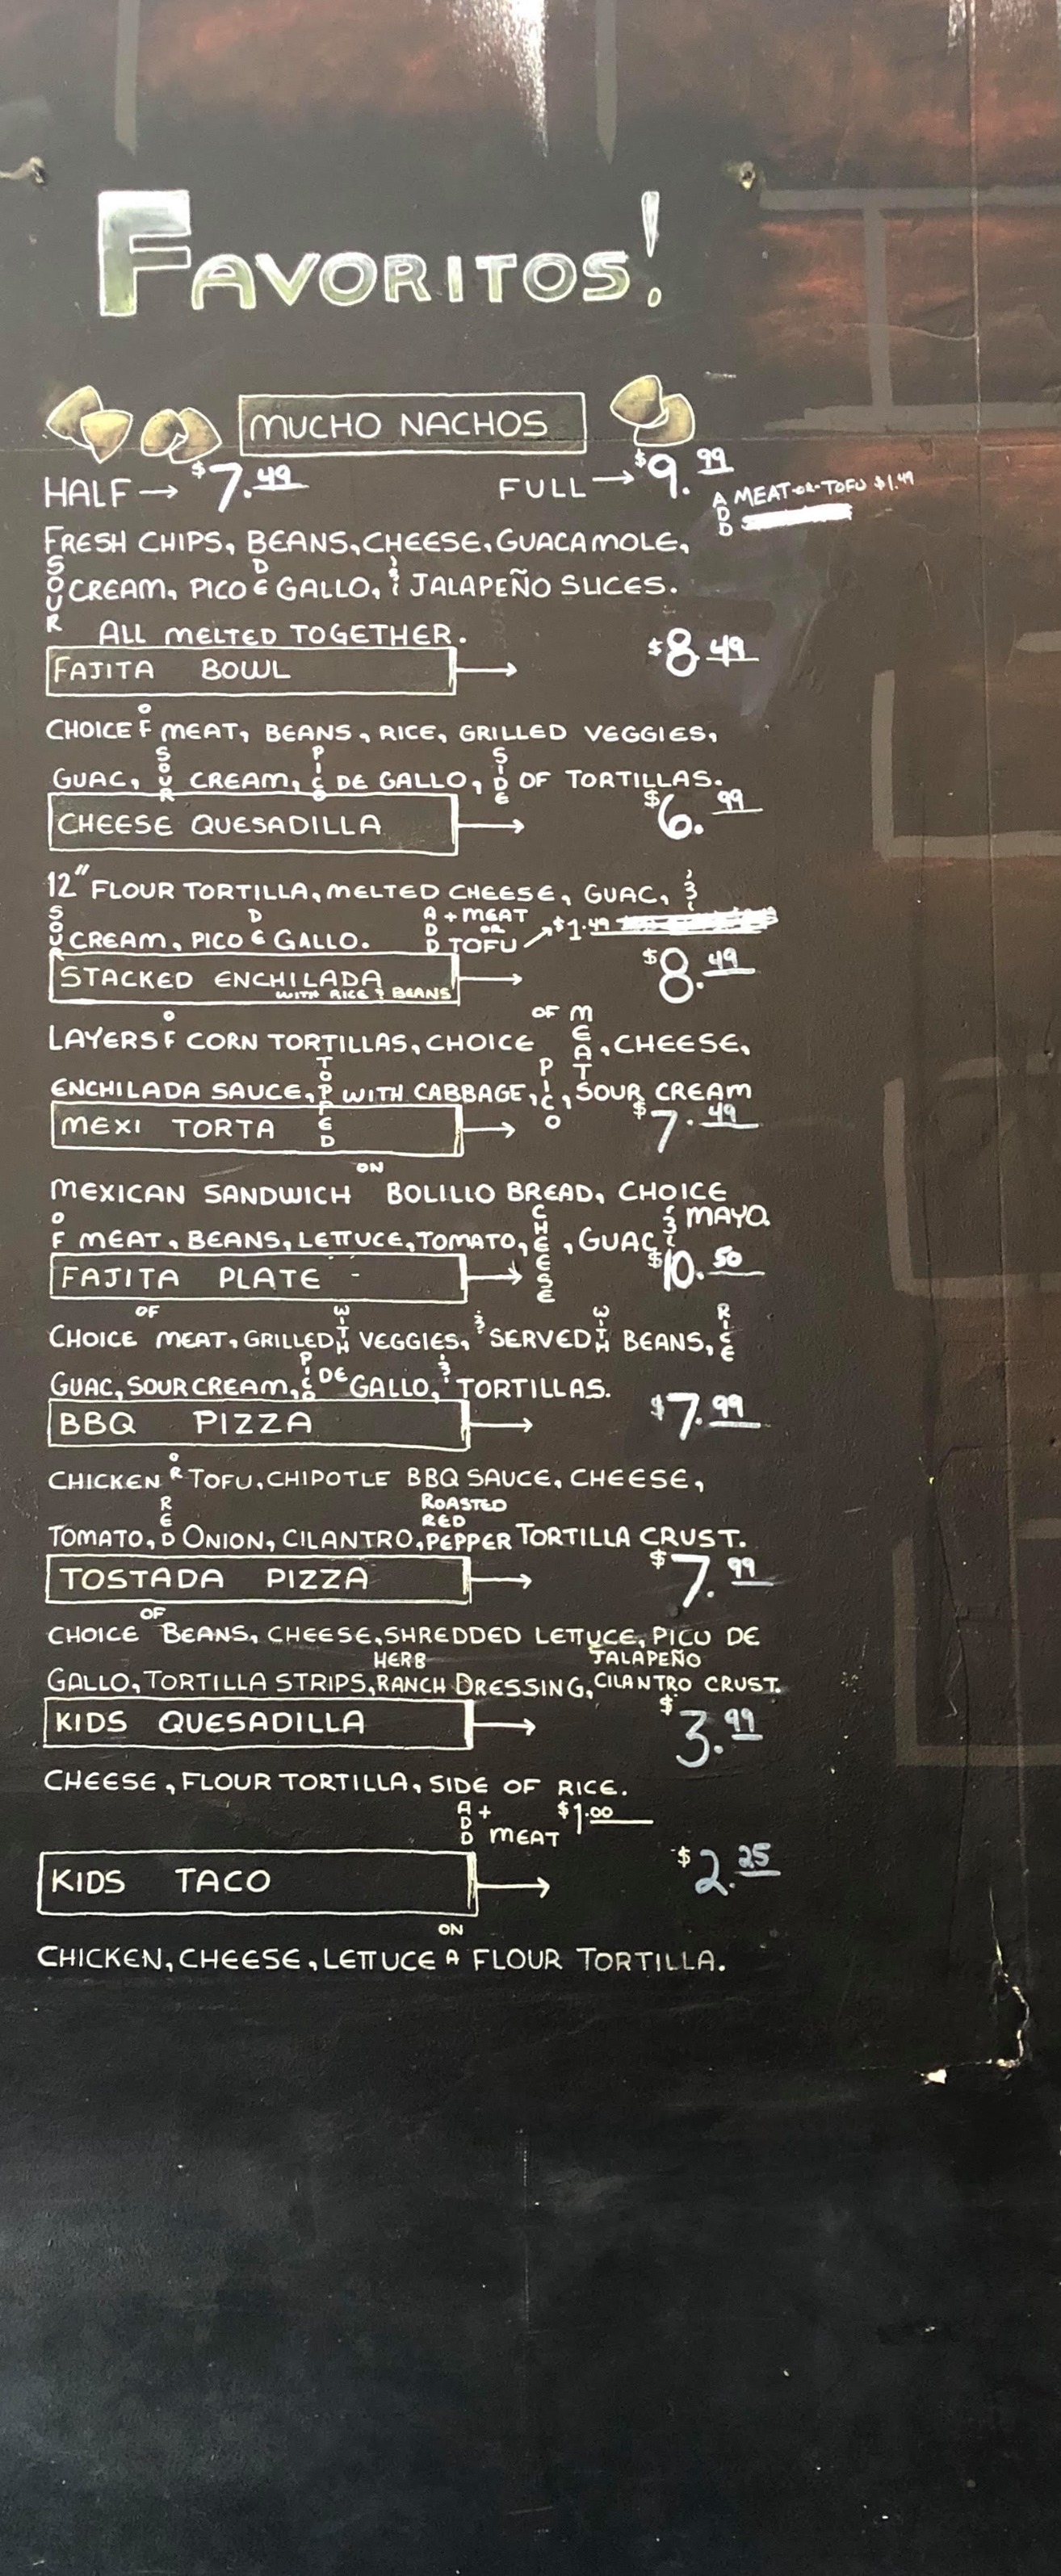 FAVORITOS!
MUCHO NACHOS
HALF → $7.49 FULL → $9.99
ADD MEAT-OR-TOFU $1.49
FRESH CHIPS, BEANS, CHEESE, GUACAMOLE,
SOUR CREAM, PICO DE GALLO, & JALAPEÑO SLICES.
ALL MELTED TOGETHER.
FAJITA BOWL → $8.49
CHOICE OF MEAT, BEANS, RICE, GRILLED VEGGIES,
GUAC, SOUR CREAM, PICO DE GALLO, SIDE OF TORTILLAS.
CHEESE QUESADILLA → $6.99
12" FLOUR TORTILLA, MELTED CHEESE, GUAC, &
SOUR CREAM, PICO DE GALLO. ADD + MEAT OR TOFU → $1.49
STACKED ENCHILADA WITH RICE & BEANS → $8.49
LAYERS OF CORN TORTILLAS, CHOICE OF MEAT, CHEESE,
ENCHILADA SAUCE, TOPPED WITH CABBAGE, PICO, SOUR CREAM
MEXI TORTA → $7.49
MEXICAN SANDWICH ON BOLILLO BREAD, CHOICE
OF MEAT, BEANS, LETTUCE, TOMATO, CHEESE, GUAC & MAYO.
FAJITA PLATE - → $10.50
CHOICE OF MEAT, GRILLED WITH VEGGIES, & SERVED WITH BEANS, RICE
GUAC, SOUR CREAM, PICO DE GALLO, & TORTILLAS.
BBQ PIZZA → $7.99
CHICKEN OR TOFU, CHIPOTLE BBQ SAUCE, CHEESE,
TOMATO, RED ONION, CILANTRO, ROASTED RED PEPPER TORTILLA CRUST.
TOSTADA PIZZA → $7.99
CHOICE OF BEANS, CHEESE, SHREDDED LETTUCE, PICO DE
GALLO, TORTILLA STRIPS, HERB RANCH DRESSING, JALAPEÑO CILANTRO CRUST.
KIDS QUESADILLA → $3.99
CHEESE, FLOUR TORTILLA, SIDE OF RICE.
ADD + MEAT $1.00
KIDS TACO → $2.25
CHICKEN, CHEESE, LETTUCE ON A FLOUR TORTILLA.